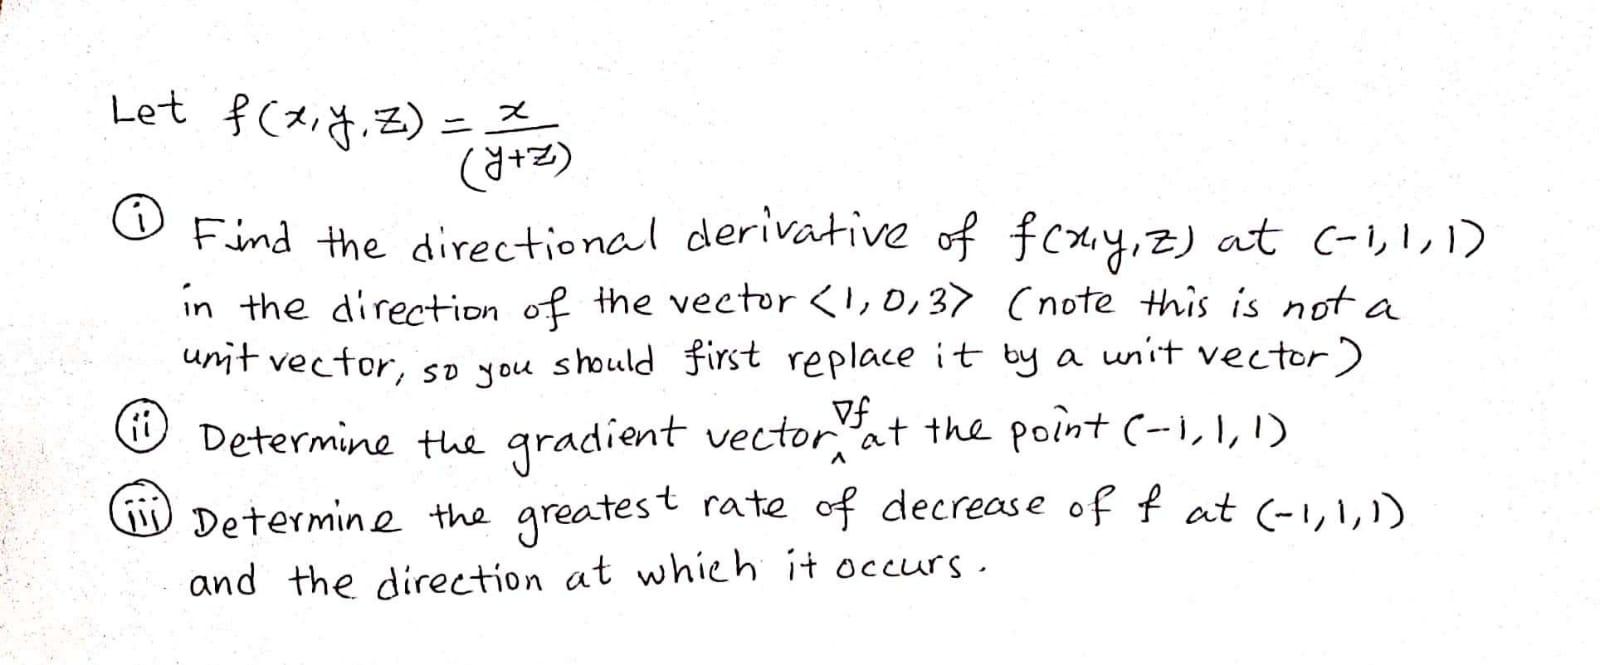 Let f(x,y,z) = x/(y+z)
(i) Find the directional derivative of f(x,y,z) at (-1,1,1)
in the direction of the vector <1,0,3> (note this is not a
unit vector, so you should first replace it by a unit vector)
(ii) Determine the gradient vector ∇f at the point (-1,1,1)
(iii) Determine the greatest rate of decrease of f at (-1,1,1)
and the direction at which it occurs.